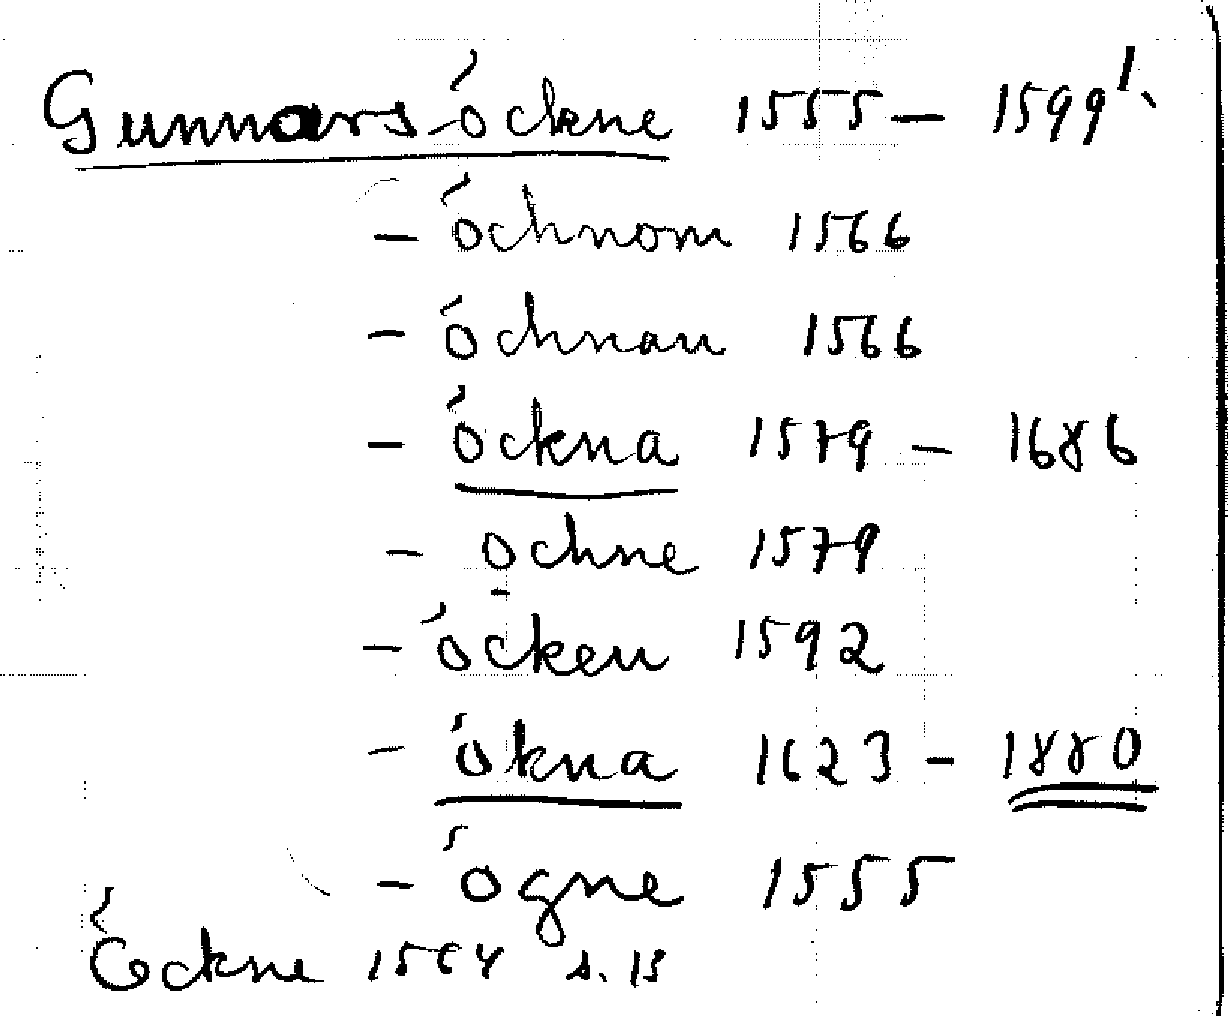 Gunnarsöckne 1555 — 1599
— öchnom 1566
— öchnan 1566
— öckna 1579 — 1686
— ochne 1579
— öcken 1592
— ökna 1623 — 1880
— ögne 1555
Öckne 1564 s. 13